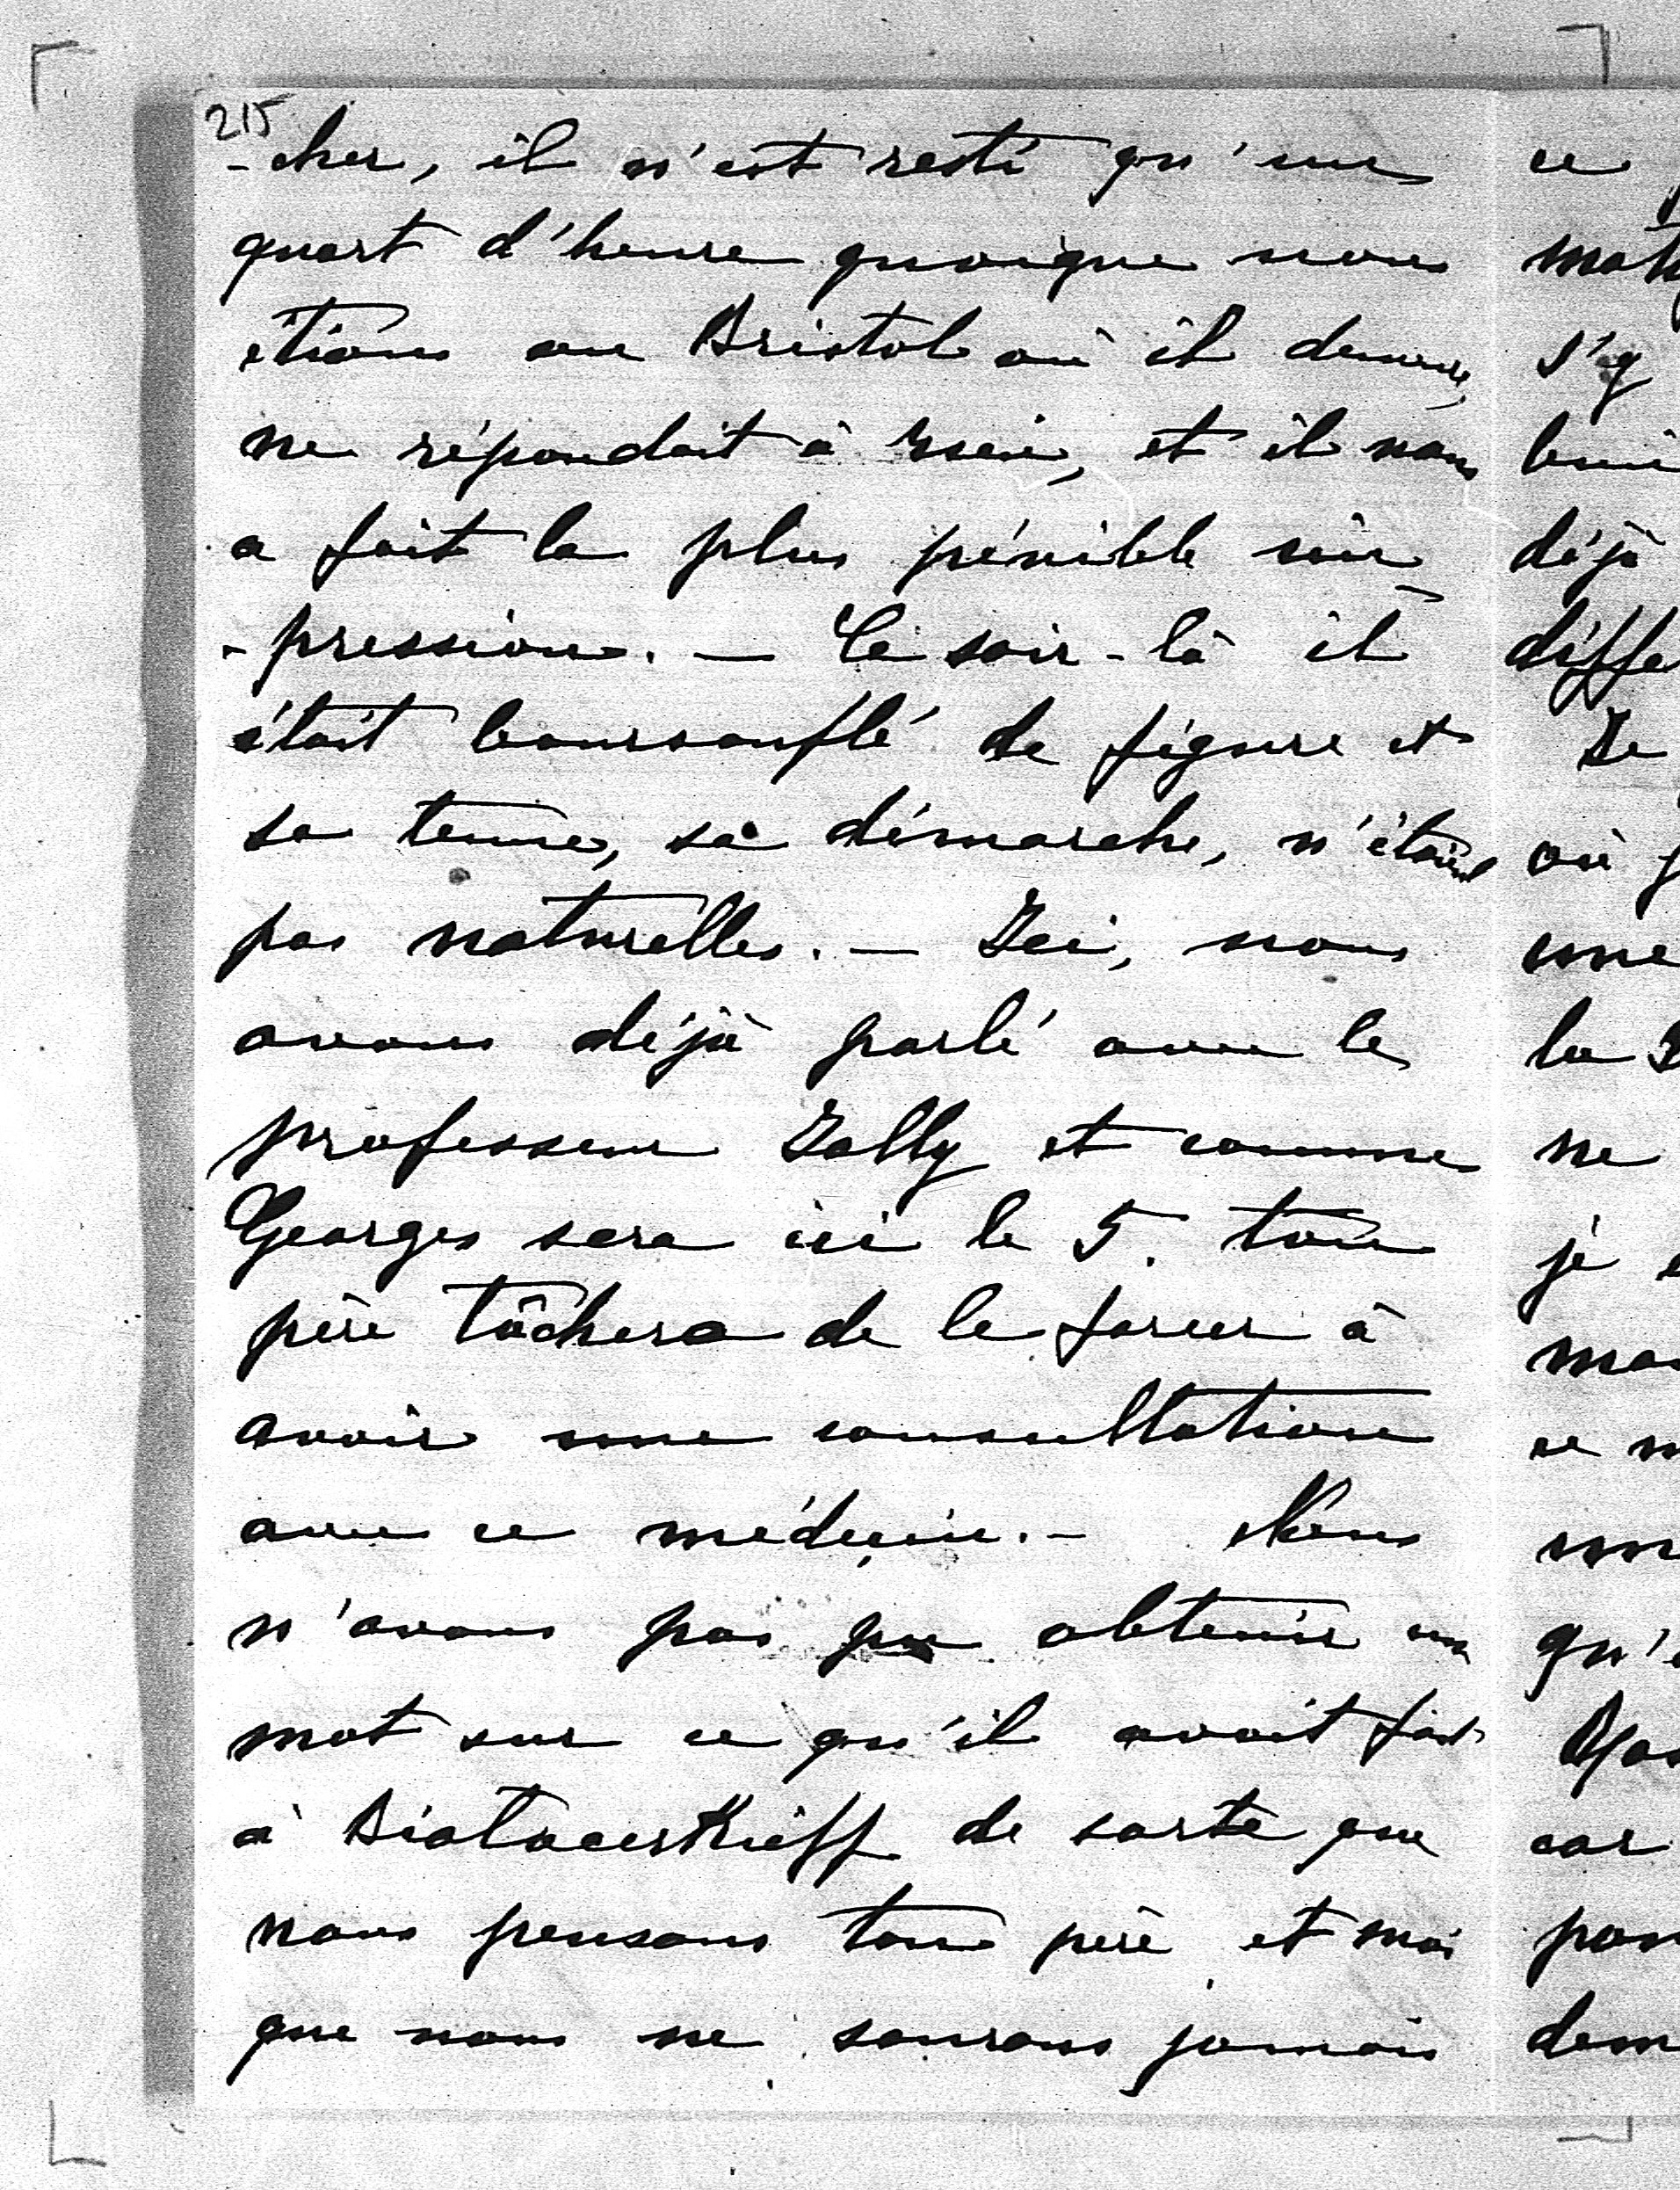 215
-cher, il n'est resté qu'un
quart d'heure quoique nous
étions au Bristol où il demeure,
ne répondait à rien, et il nous
a fait la plus pénible im-
-pression. — Ce soir-là il
était boursouflé de figure et
sa tenue, sa démarche, n'étaient
pas naturelles. — Ici, nous
avons déjà parlé avec le
professeur Jolly et comme
Georges sera ici le 5. ton
père tâchera de le forcer à
avoir une consultation
avec ce médecin. - Nous
n'avons pas pu obtenir un
mot sur ce qu'il avait fait
à Biatacerkieff de sorte que
nous pensons ton père et moi
que nous ne saurons jamais
ce
s'y
déjà
Je
où
une
la
ne
je
ce
car